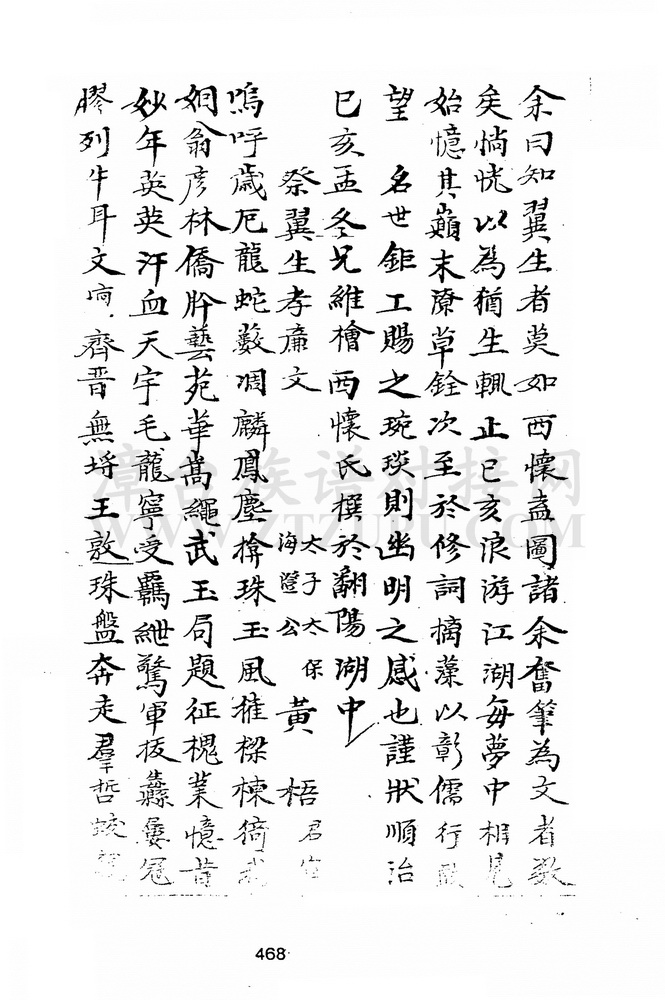 余曰知翼生者莫如西懷盍圖諸余奮筆為文者數
矣惝恍以為猶生輒止己亥浪游江湖每夢中相見
始憶其巔末潦草銓次至於修詞摛藻以彰儒行
望 名世鉅工賜之琬琰則幽明之感也謹狀順治
己亥孟冬兄維檜西懷氏撰於鄱陽湖中
祭翼生孝廉文 太子太保海澄公 黃梧 君
嗚呼歲厄龍蛇藪凋麟鳳塵揜珠玉風摧樑棟猗
姻翁彥林僑肸藝苑華嵩繩武玉局題征槐業憶昔
妙年英英汗血天宇毛龍寧受羈紲驚軍板纛屢冠
膠列牛耳文 齊晋無埒王敦珠盤奔走羣哲
漳台族谱对接网
WWW.ZTZUPU.COM
468